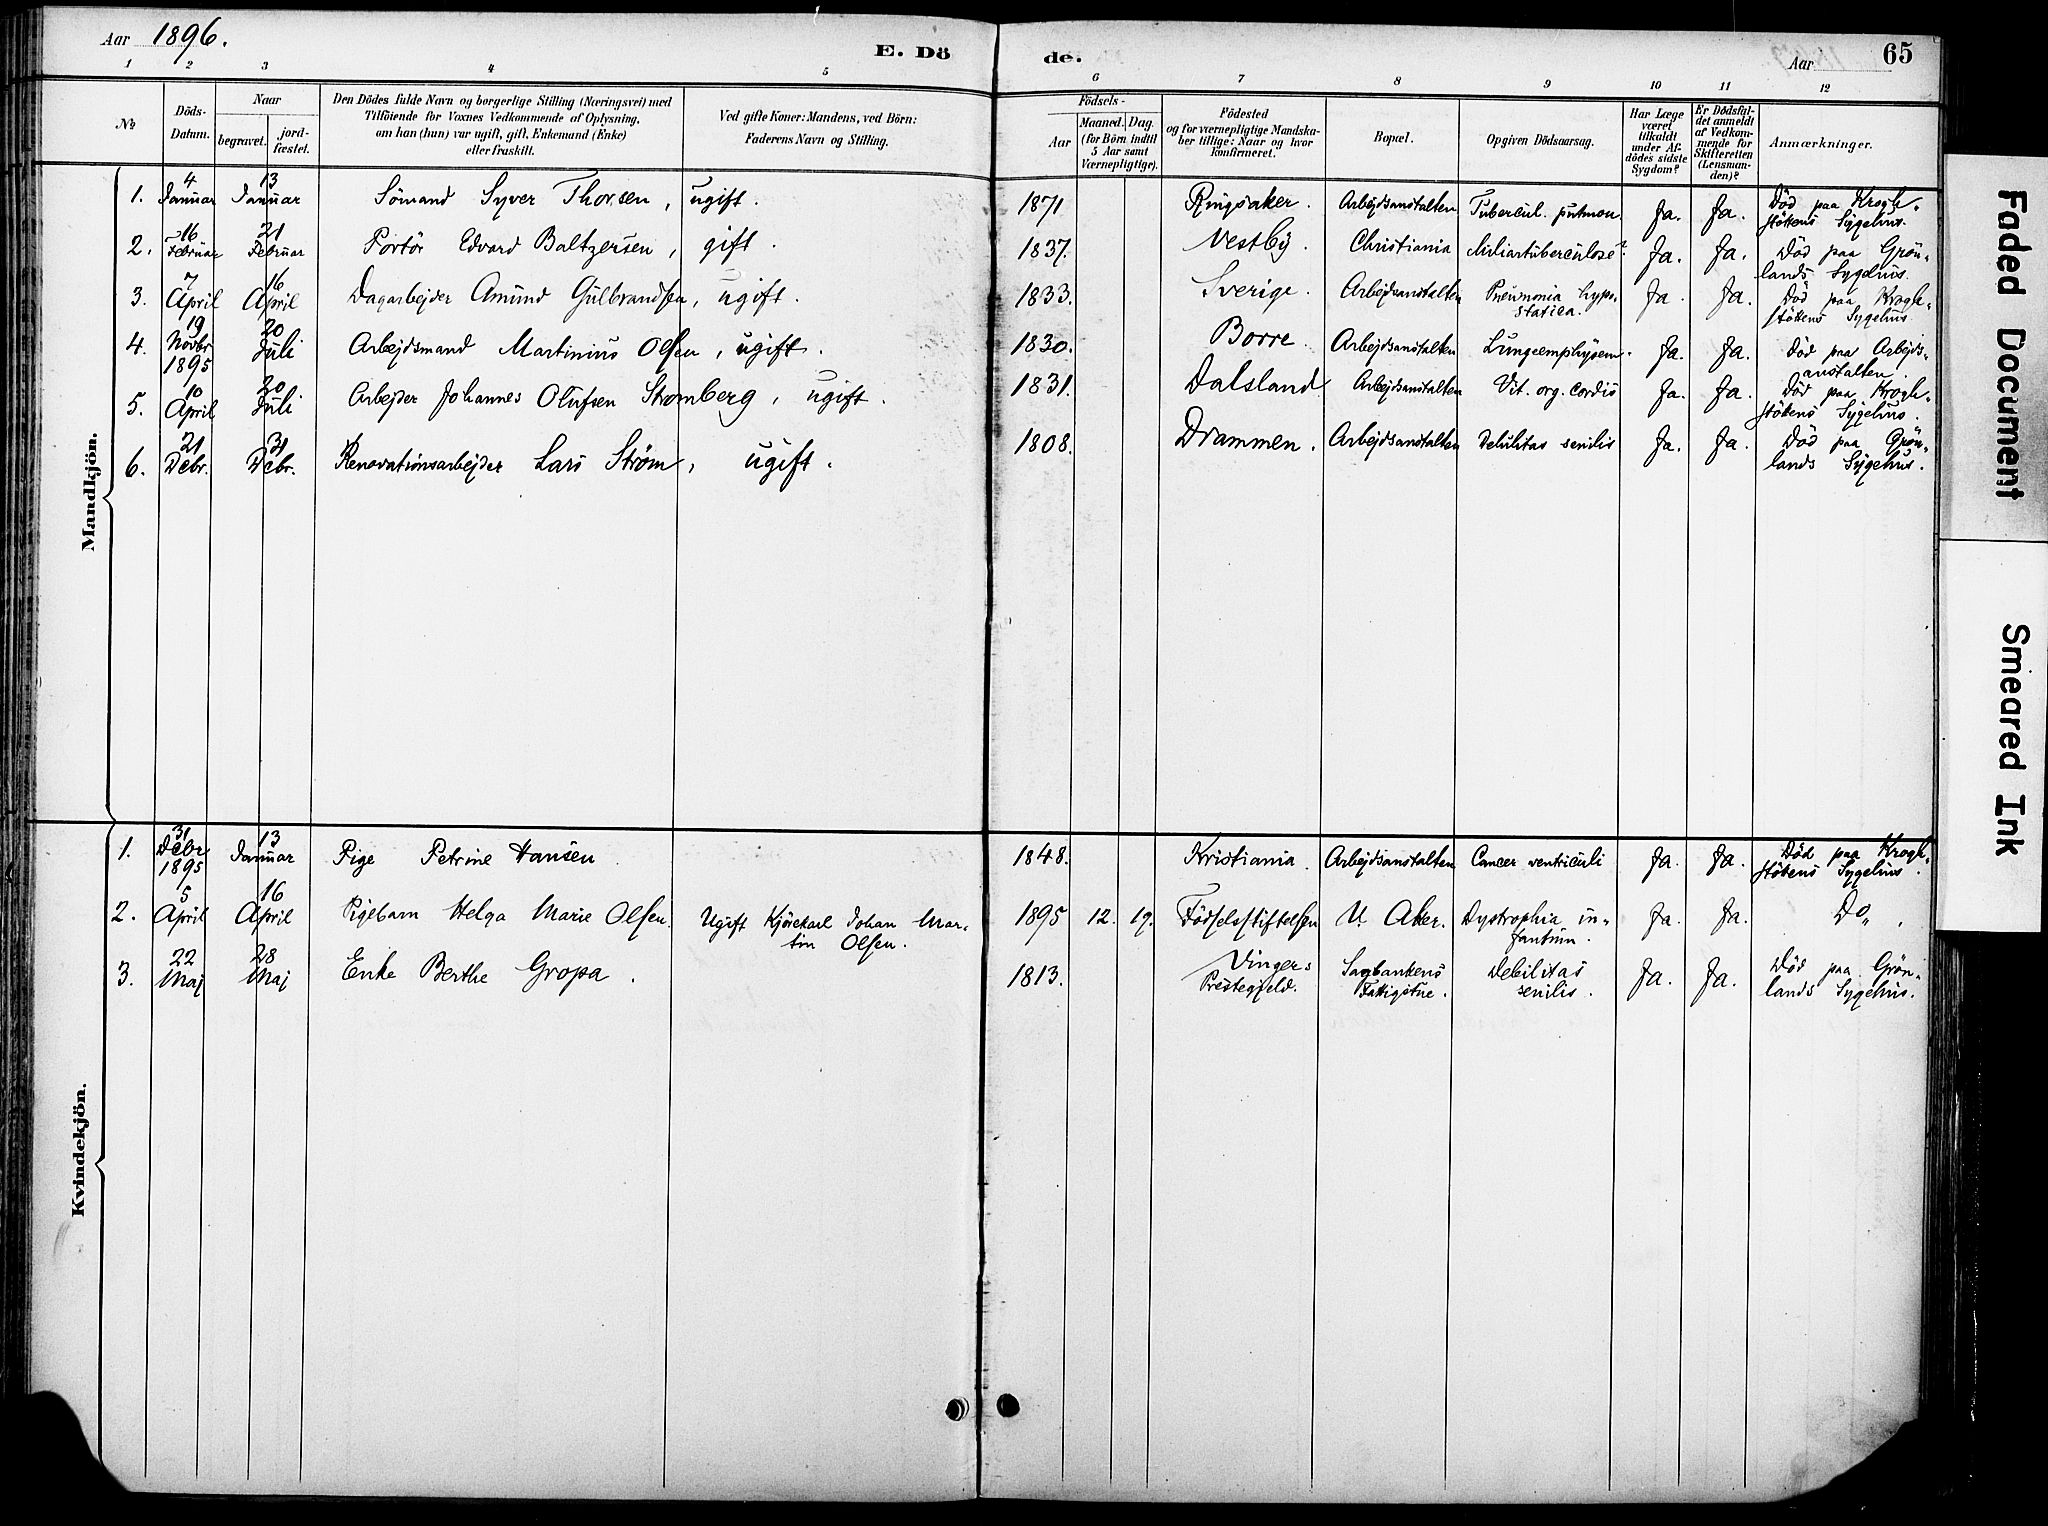 Aar 1896.
E. Dö
de.
Aar
65
1 2 3 4 5 6 7 8 9 10 11 12
No
Döds-Datum.
Naar
begravet.
jord-fæstet.
Den Dödes fulde Navn og borgerlige Stilling (Næringsvei) med
Tilföiende for Voxnes Vedkommende af Oplysning,
om han (hun) var ugift, gift, Enkemand (Enke)
eller fraskilt.
Ved gifte Koner: Mandens, ved Börn:
Faderens Navn og Stilling.
Födsels-
Aar
Maaned. Dag.
(for Börn indtil
5 Aar samt
Værnepligtige).
Födested
og for værnepligtige Mandska-
ber tillige: Naar og hvor
konfirmeret.
Bopæl.
Opgiven Dödsaarsag.
Har Læge
været
tilkaldt
under Af-
dödes sidste
Sygdom?
Er Dödsfal-
det anmeldt
af Vedkom-
mende for
Skifteretten
(Lensman-
den)?
Anmærkninger.
Mandkjön.
1. 4 Januar 13 Januar Sömand Syver Thorsen, ugift. 1871 Ringsaker. Arbejdsanstalten Tubercul. pulmon. Ja. Ja. Död paa Krogh-
stöttens Sygehus.
2. 16 Februar 21 Februar Portör Edvard Baltzersen, gift. 1837. Vestby. Christiania Miliartuberculose? Ja. Ja. Död paa Grön-
lands Sygehus.
3. 7 April 16 April Dagarbejder Amund Gulbrandsen, ugift. 1833. Sverige. Arbejdsanstalten Pneumonia hypo-
statica. Ja. Ja. Död paa Krogh-
stöttens Sygehus.
4. 19 Novbr 1895 20 Juli Arbejdsmand Martinius Olsen, ugift. 1830. Borre. Arbejdsanstalten Lungeemphysem. Ja. Ja. Död paa Arbejds-
anstalten.
5. 10 April 20 Juli Arbejder Johannes Olufsen Stromberg, ugift. 1831. Dalsland. Arbejdsanstalten Vit. org. cordis Ja. Ja. Död paa Krogh-
stöttens Sygehus.
6. 21 Debr. 31 Debr. Renovationsarbejder Lars Strøm, ugift. 1808. Drammen. Arbejdsanstalten Debilitas senilis Ja. Ja. Död paa Grön-
lands Sygehus.
Kvindekjön.
1. 31 Debr 1895 13 Januar Pige Petrine Hansen. 1848. Kristiania. Arbejdsanstalten Cancer ventriculi Ja. Ja. Död paa Krogh-
stöttens Sygehus.
2. 5 April 16 April Pigebarn Helga Marie Olsen. Ugift Kjörekarl Johan Mar-
tin Olsen. 1895 12. 19. Födselsstiftelsen V. Aker. Dystrophia in-
fantum. Ja. Ja. Do
3. 22 Maj 28 Maj Enke Berthe Gropa. 1813. Vinger
Prestegjeld. Sagbankens
Fattigstue. Debilitas
senilis. Ja. Ja. Död paa Grön-
lands Sygehus.
Faded Document
Smeared Ink